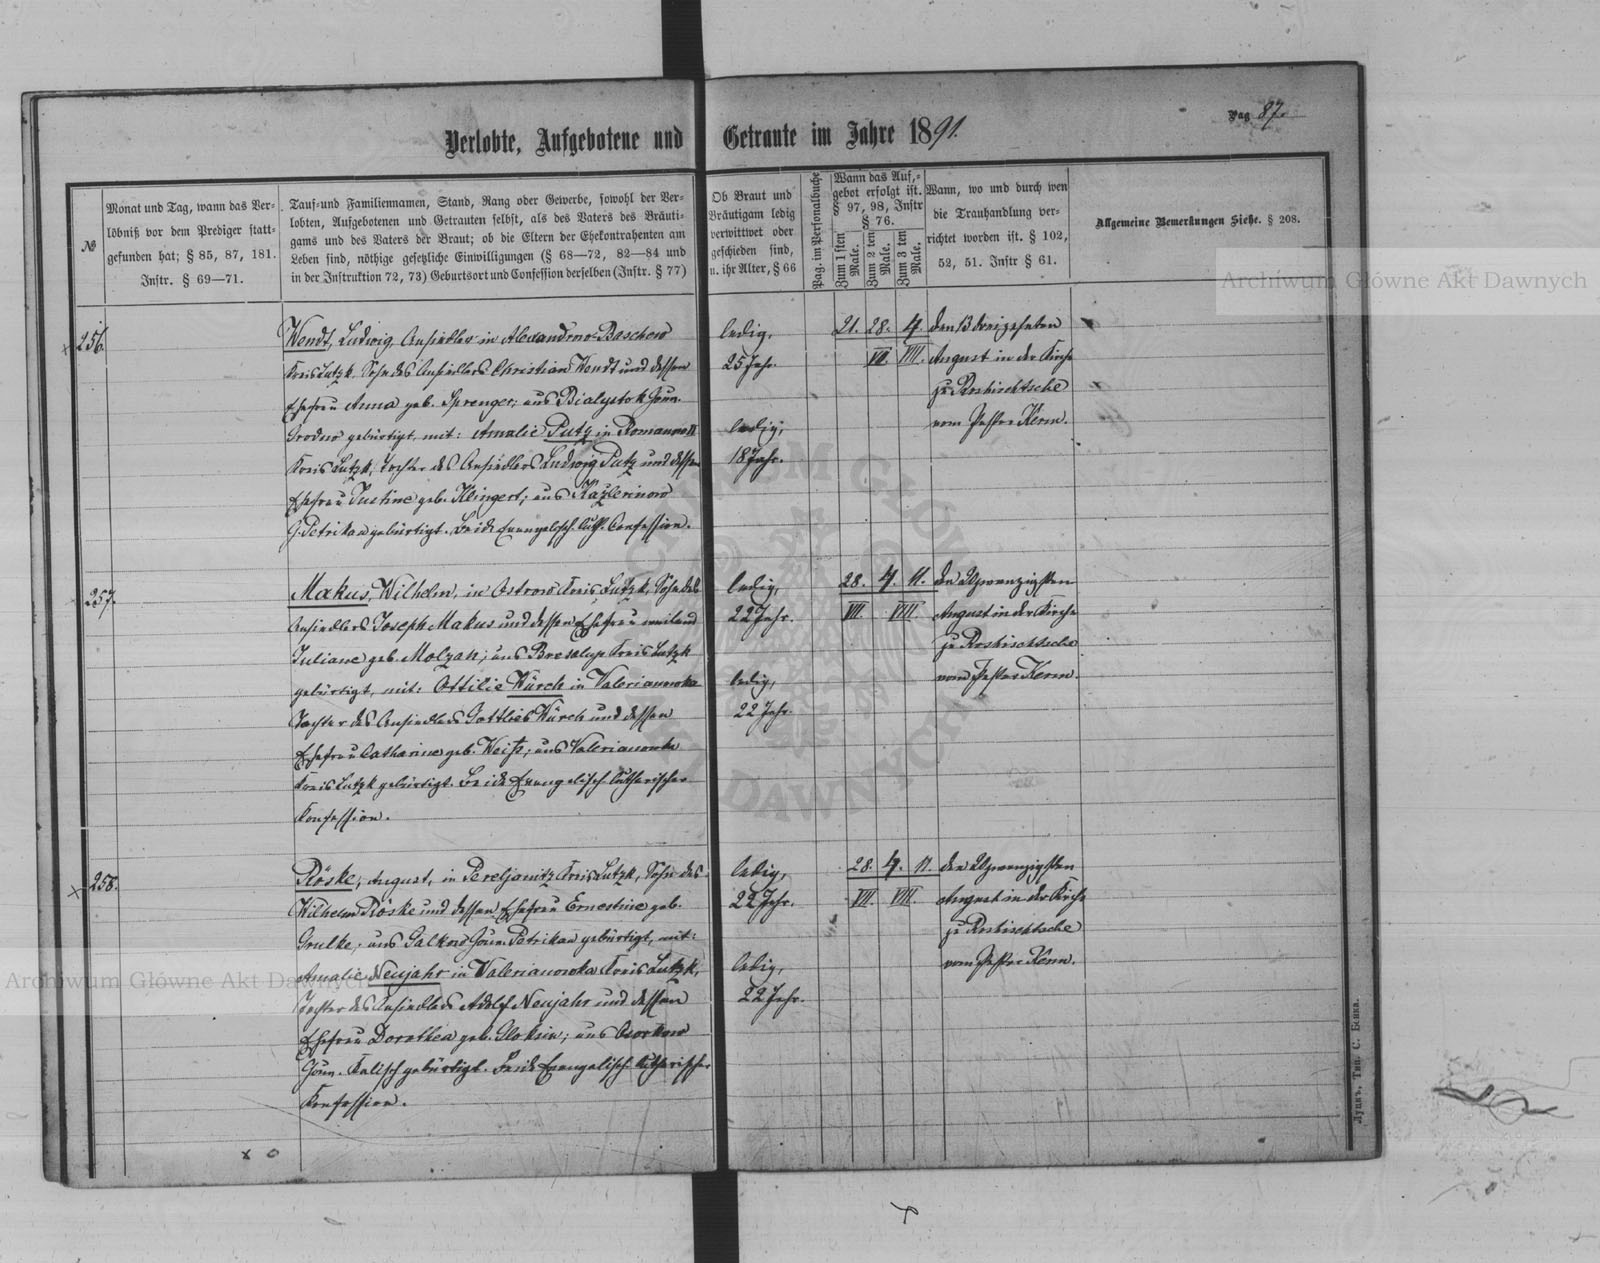 Pag 87.
Verlobte, Aufgebotene und Getraute im Jahre 1891.
№
Monat und Tag, wann das Ver-
löbniß vor dem Prediger statt-
gefunden hat; § 85, 87, 181.
Instr. § 69—71.
Tauf- und Familiennamen, Stand, Rang oder Gewerbe, sowohl der Ver-
lobten, Aufgebotenen und Getrauten selbst, als des Vaters des Bräuti-
gams und des Vaters der Braut; ob die Eltern der Ehekontrahenten am
Leben sind, nöthige gesetzliche Einwilligungen (§ 68—72, 82—84 und
in der Instruktion 72, 73) Geburtsort und Confession derselben (Instr. § 77)
Ob Braut und
Bräutigam ledig
verwittwet oder
geschieden sind,
u. ihr Alter, § 66
Pag. im Personalbuche
Wann das Auf-
gebot erfolgt ist.
§ 97, 98, Instr
§ 76.
Zum 1 sten Male.
Zum 2 ten Male.
Zum 3 ten Male.
Wann, wo und durch wen
die Trauhandlung ver-
richtet worden ist. § 102,
52, 51. Instr § 61.
Allgemeine Bemerkungen Siehe. § 208.
256.
Wendt, Ludwig, Ansiedler in Alexandrow-Boscherd
Kreis Lutzk. Sohn des Ansiedlers Christian Wendt und dessen
Ehefrau Anna geb. Sprenger; aus Bialystok Gouv.
Grodno gebürtigt, mit: Amalie Putz in Romanow II
Kreis Lutzk, Tochter des Ansiedlers Ludwig Putz und dessen
Ehefrau Justine geb. Klingert; aus
G. Petrikau gebürtigt. Beide Evangelisch. Luth. Confession.
ledig,
25 Jahr.
ledig,
18 Jahr.
21. 28. 4.
VII. VIII.
den 13 dreizehnten
August in der Kirche
zu Roshischtsche
vom Pastor Kerm.
257.
Makus, Wilhelm, in Ostrow Kreis Lutzk, Sohn des
Ansiedlers Joseph Makus und dessen Ehefrau weiland
Juliane geb. Molzan; aus Kreis Lutzk
gebürtigt, mit: Ottilie Würch in Valerianowka
Tochter des Ansiedlers Gottlieb Würch und dessen
Ehefrau Catharine geb. Weiß; aus Valerianowka
Kreis Lutzk gebürtigt. Beide Evangelisch lutherischer
Konfession.
ledig,
22 Jahr.
ledig,
22 Jahr.
28. 4. 11.
VII. VIII.
den 20 zwanzigsten
August in der Kirche
zu Roshischtsche
vom Pastor Kerm.
258.
Röske, August, in Pereljanitz Kreis Lutzk, Sohn des
Wilhelm Röske und dessen Ehefrau Ernestine geb.
Grulke, aus Galkow Gouv. Petrikau gebürtigt, mit:
Amalie Neujahr in Valerianowka Kreis Lutzk,
Tochter des Ansiedlers Adolf Neujahr und dessen
Ehefrau Dorothea geb. Gloksin; aus Osorkow
Gouv. Kalisch gebürtigt. Beide Evangelisch lutherischer
Konfession.
ledig,
22 Jahr.
ledig,
22 Jahr.
28. 4. 11.
VII. VIII.
den 20 zwanzigsten
August in der Kirche
zu Roshischtsche
vom Pastor Kerm.
Луцкъ, Тип. С. Бонка.
Archiwum Główne Akt Dawnych
Archiwum Główne Akt Dawnych
ARCHIWUM GŁÓWNE AKT DAWNYCH